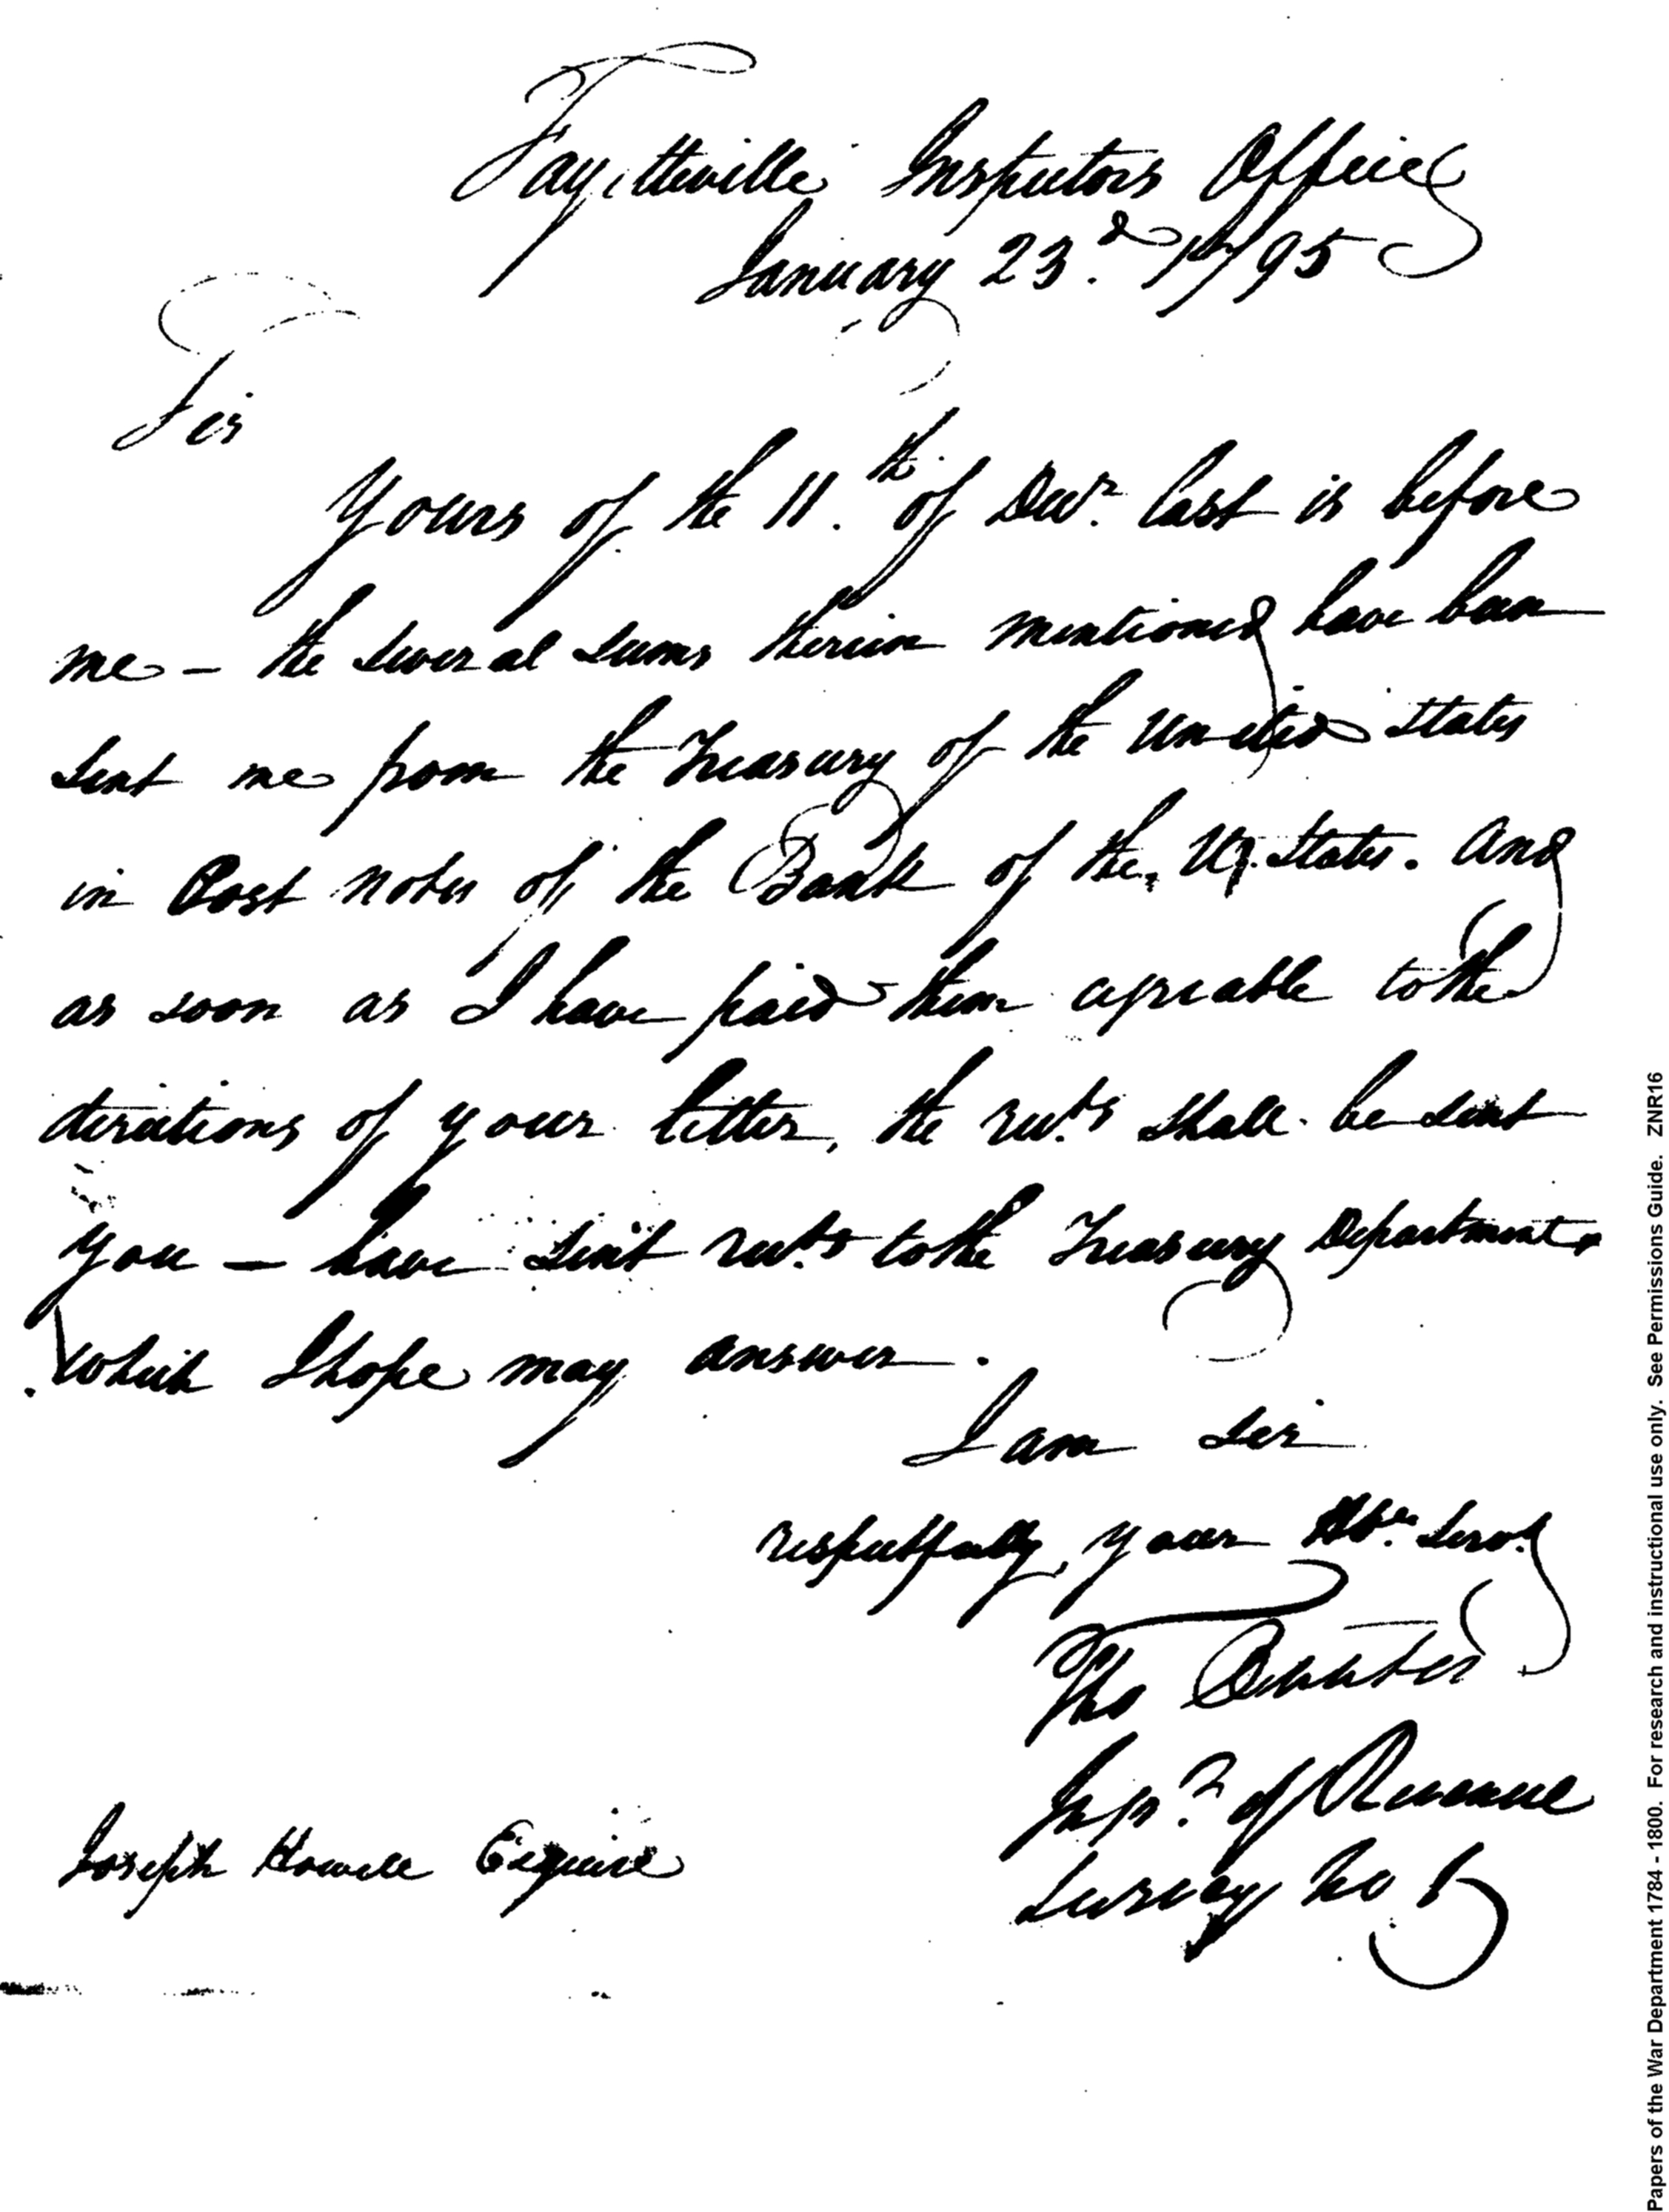 Fayetteville Inspectors Office
January 23.d 1795
Sir
Yours of the 11.th of Decr. last is before
me - the several sums therein mentioned have been
sent me from the Treasury of the United States
in Post notes of the Bank of the U. States. And
as soon as I have paid them agreable to the
directions of your letter, the rects. shall be sent
you - have sent rects. to the Treasury Department
which I hope may answer.
I am Sir
respectfully, your Obe. Servt.
Tho
Inspr. of Revenue
Survey No 5
Joseph Howell Esquire
Papers of the War Department 1784 - 1800. For research and instructional use only. See Permissions Guide. ZNR16